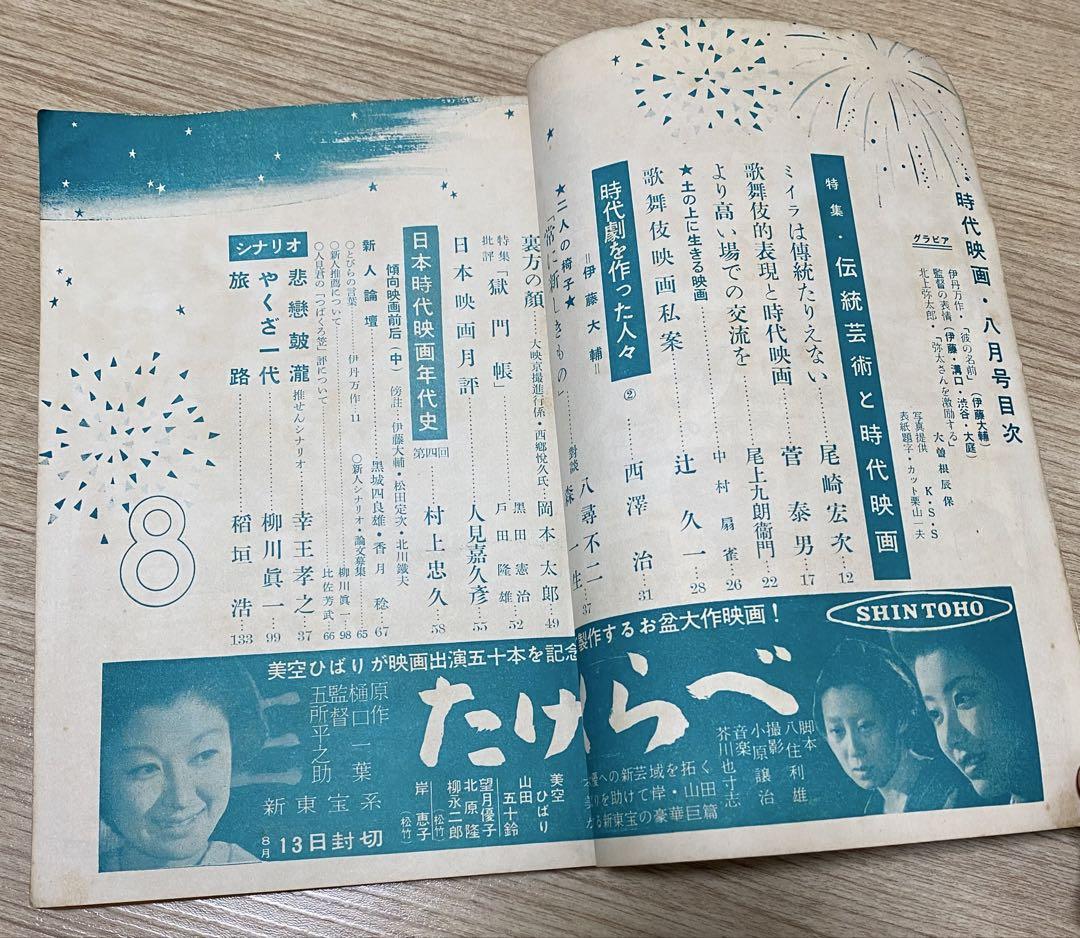 時代映画・八月号目次
グラビア
伊丹万作・「彼の名前」(伊藤大輔)
監督の表情(伊藤 溝口 渋谷・大庭)
北上弥太郎・「弥太さんを激励する」
大曽根辰保
写真提供 K・S・S
表紙題字・カット 栗山一夫
特集・伝統芸術と時代映画
ミイラは伝統たりえない……尾崎宏次…12
歌舞伎的表現と時代映画……菅泰男…17
より高い場での交流を……尾上九朗衛門…22
★土の上に生きる映画……中村扇雀…26
歌舞伎映画私案……辻久一…28
時代劇を作った人々 ②……西澤治…31
=伊藤大輔=
★二人の椅子★
「常に新しきもの」……対談 八尋不二 森一生…37
裏方の顔……大映京撮進行係・西郷悦久氏…岡本太郎…49
特集批評「獄門帳」……黒田憲治 戸田隆雄…52
日本映画月評……人見嘉久彦…55
日本時代映画年代史 第四回……村上忠久…58
傾向映画前后(中) 傍註・伊藤大輔・松田定次・北川鐵夫
新人論壇……黒城四良雄・香月稔…67
○とびらの言葉……伊丹万作…11
○新人シナリオ・論文募集…65
○新人推薦について……柳川眞一…98
○人見君の「つばくろ笠」評について……比佐芳武…66
シナリオ
悲戀皷瀧 推せんシナリオ……幸王孝之…37
やくざ一代……柳川眞一…99
旅路……稲垣浩…133
8
SHINTOHO
美空ひばりが映画出演五十本を記念
製作するお盆大作映画!
たけくらべ
脚本 八住利雄
撮影 小原譲治
音楽 芥川也寸志
優への新芸域を拓く
りを助けて岸・山田
る新東宝の豪華巨篇
美空ひばり
山田五十鈴
望月優子
北原隆
柳永二郎
(松竹)
岸恵子
(松竹)
原作 樋口一葉
監督 五所平之助
新東宝系
8月13日封切